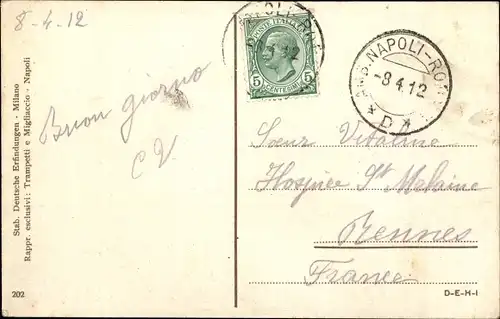 8-4-12
Buon giorno
C V
Stab. Deutsche Erfindungen - Milano
Rappr. esclusivi: Trampetti e Migliaccio - Napoli
202
POSTE ITALIANE
5 5
CENTESIMI
AMB. NAPOLI-ROMA
-8 4.12
* D *
Sœur Vitaline
Hospice St Melaine
Rennes
France
D-E-H-I